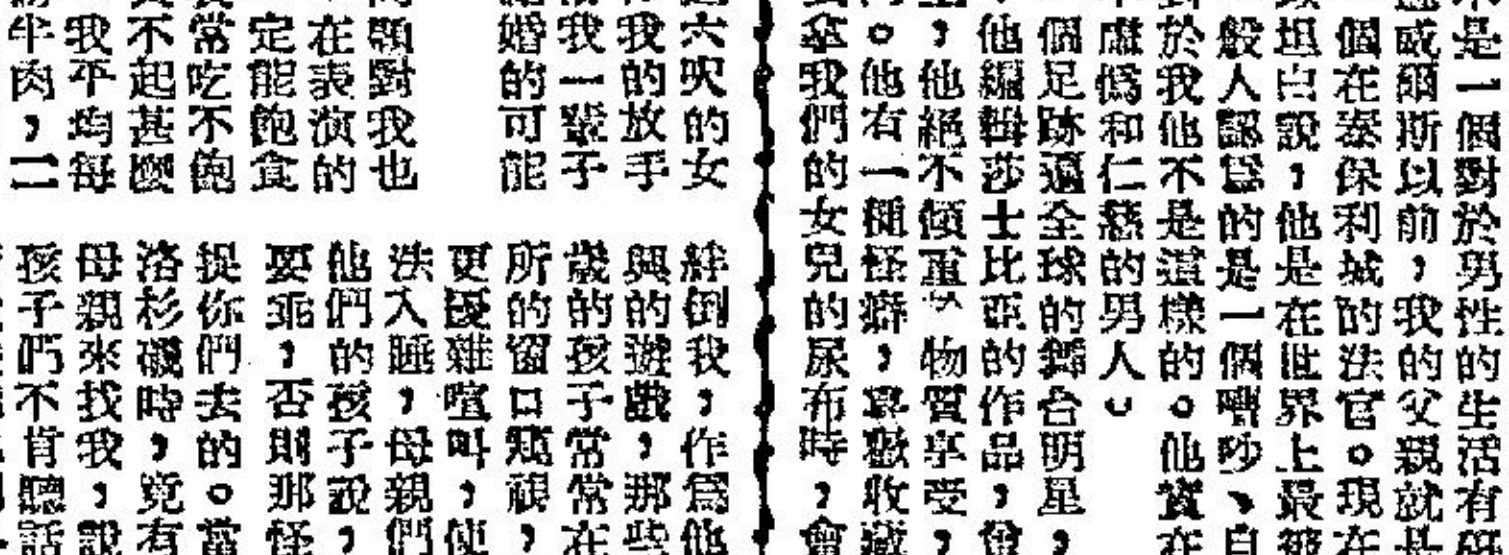 是一個對於男性的生活有
或爾斯以前，我的父親就是
個在泰保利城的法官。現在
坦白說，他是在世界上最被
般人認爲的是一個嘈吵、自
於我他不是這樣的。他實在
虛僞和仁慈的男人。
個足跡遍全球的舞台明星，
他編輯莎士比亞的作品，曾
，他絕不傾重 物質享受，
。他有一種怪癖，喜歡收藏
我們的女兒的尿布時，會
六呎的女
我的放手
我一輩子
婚的可能
顯對我也
在表演的
定能飽食
常吃不飽
不起甚麼
我平均每
半肉，二
絆倒我，作爲他
興的遊戲，那些
歲的孩子常常在
所的窗口窺視，
更擾雜喧叫，使
法入睡，母親們
他們的孩子說，
要乖，否則那怪
捉你們去的。當
洛杉磯時，竟有
母親來找我，說
孩子們不肯聽話